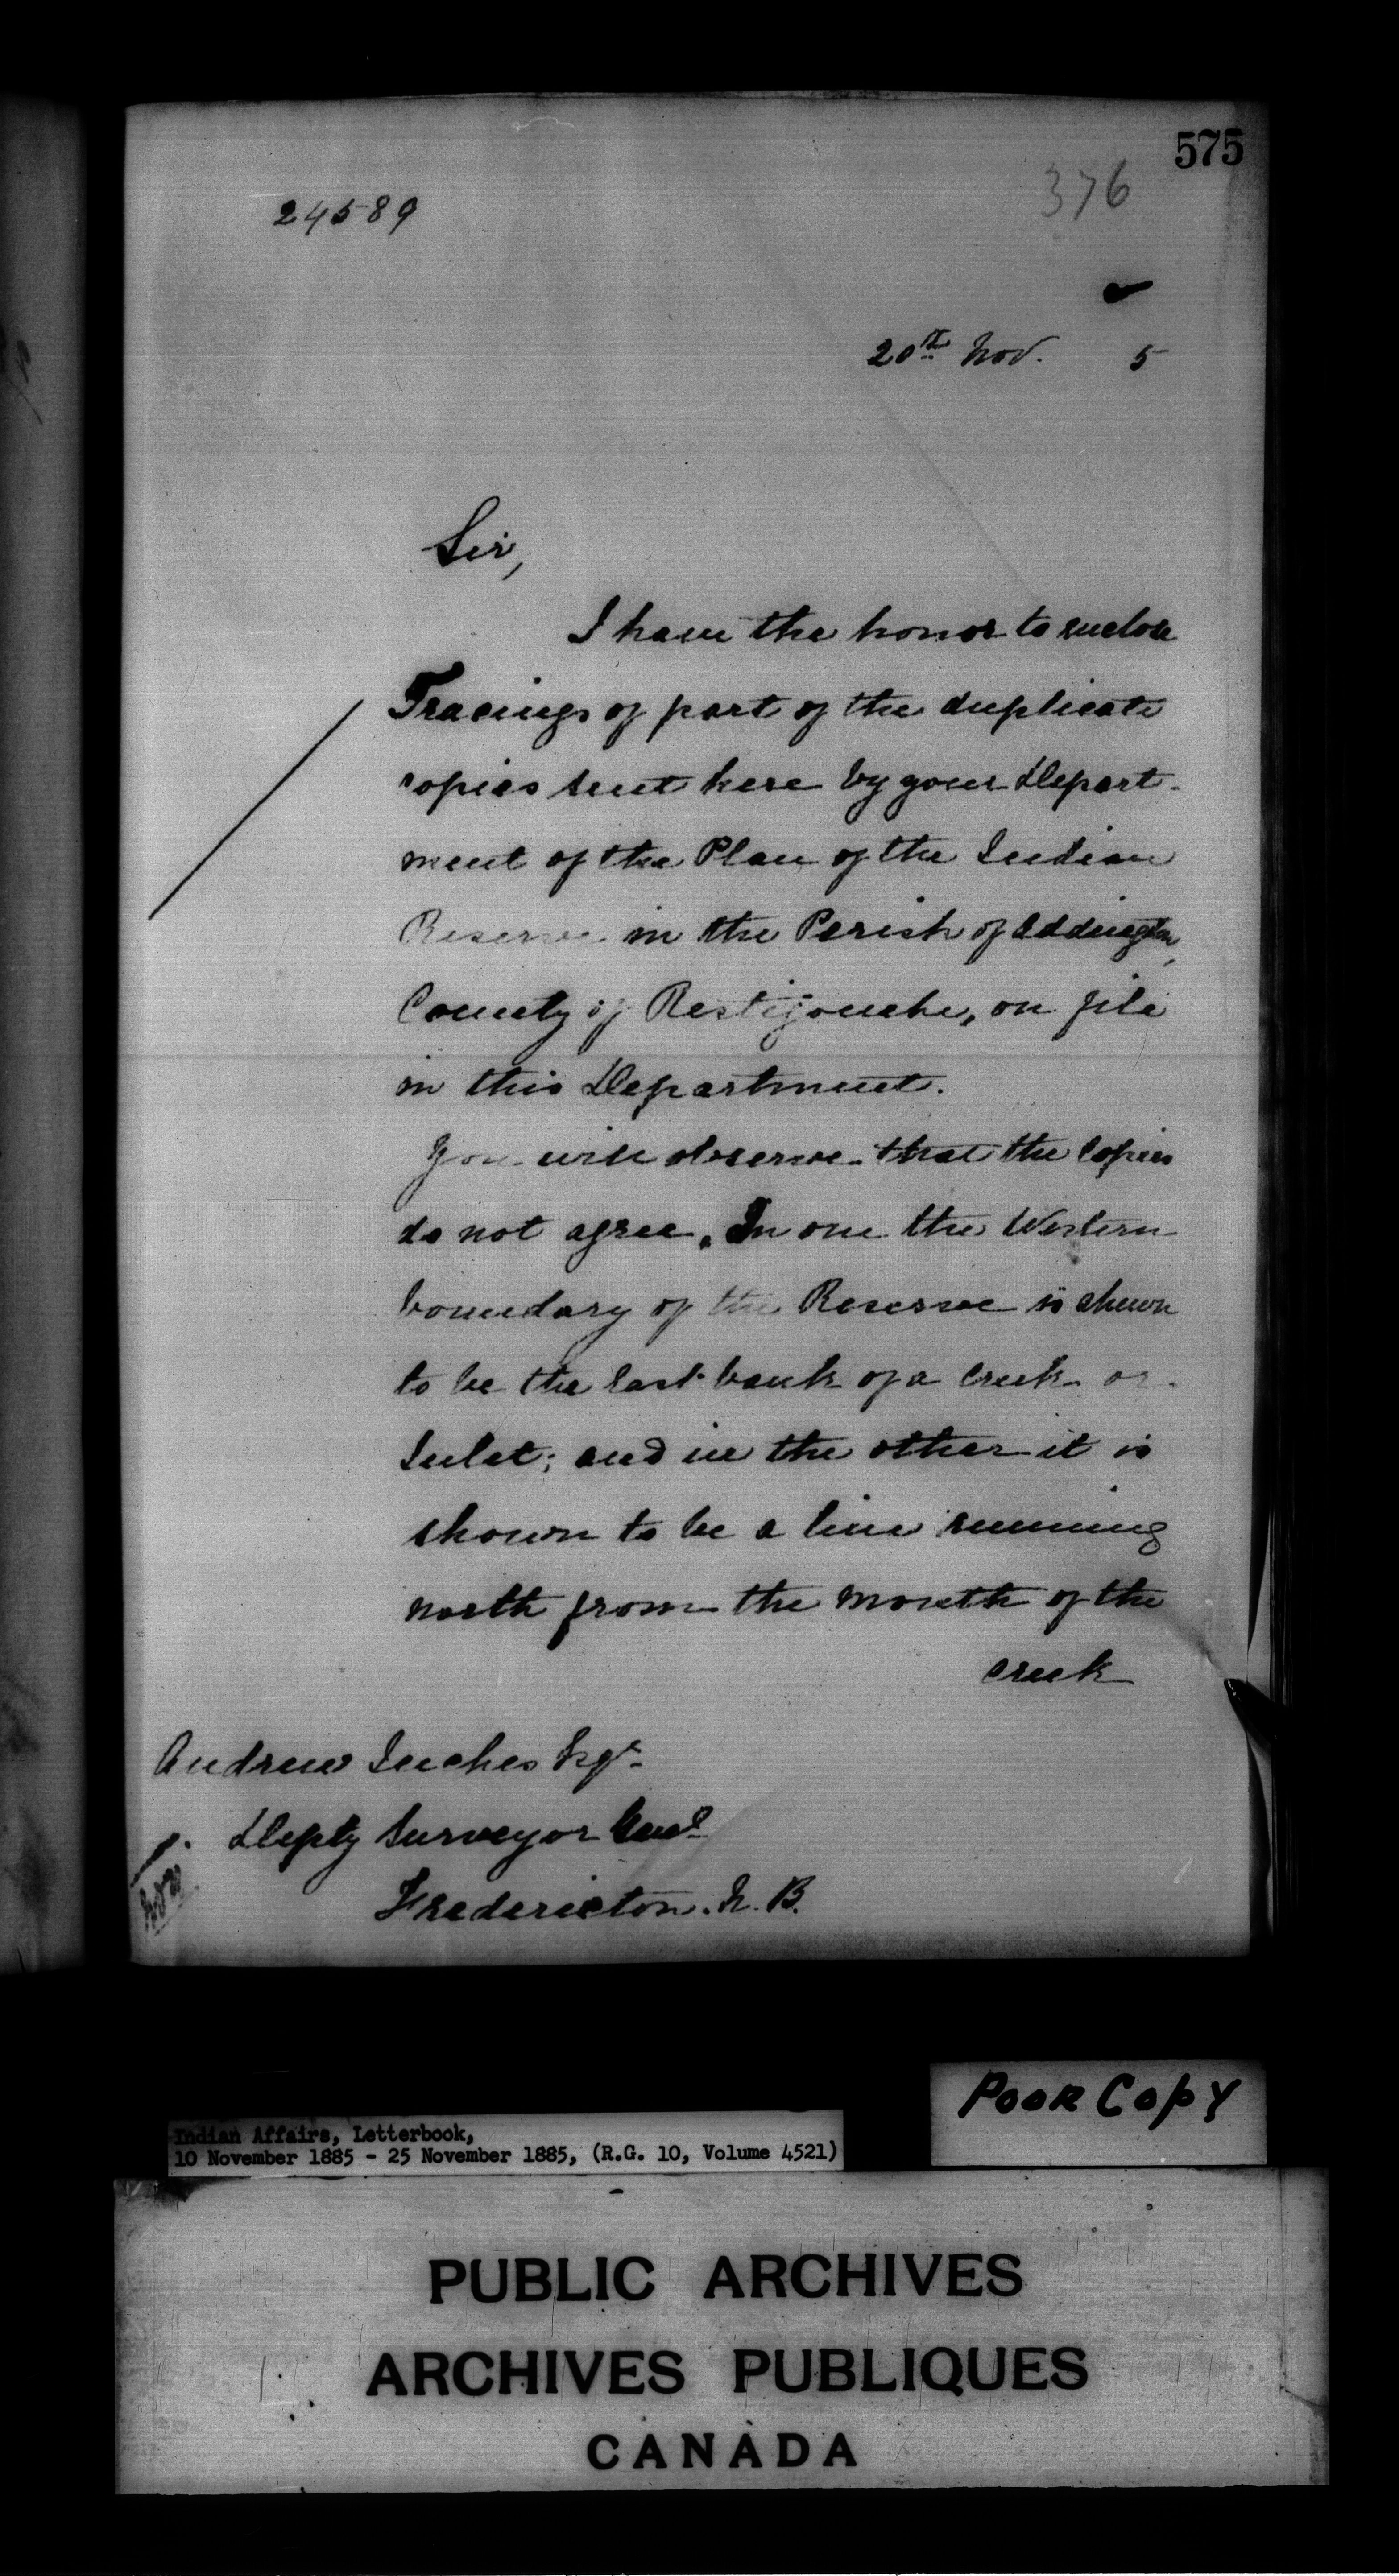 575
376
24589
20th Nov. 5
Sir,
I have the honor to enclose
Tracings of part of the duplicate
copies sent here by your Depart-
ment of the Plan of the Indian
Reserve in the Parish of Addington,
County of Restigouche, on file
in this Department.
You will observe that the Copies
do not agree. In one the Western
boundary of the Reserve is shewn
to be the East bank of a Creek or
Inlet; and in the other it is
shown to be a line running
north from the Mouth of the
creek
Andrew Inches Esqr
Depty Surveyor Genl
Fredericton. N. B.
Poor Copy
Indian Affairs, Letterbook,
10 November 1885 - 25 November 1885, (R.G. 10, Volume 4521)
PUBLIC ARCHIVES
ARCHIVES PUBLIQUES
CANADA